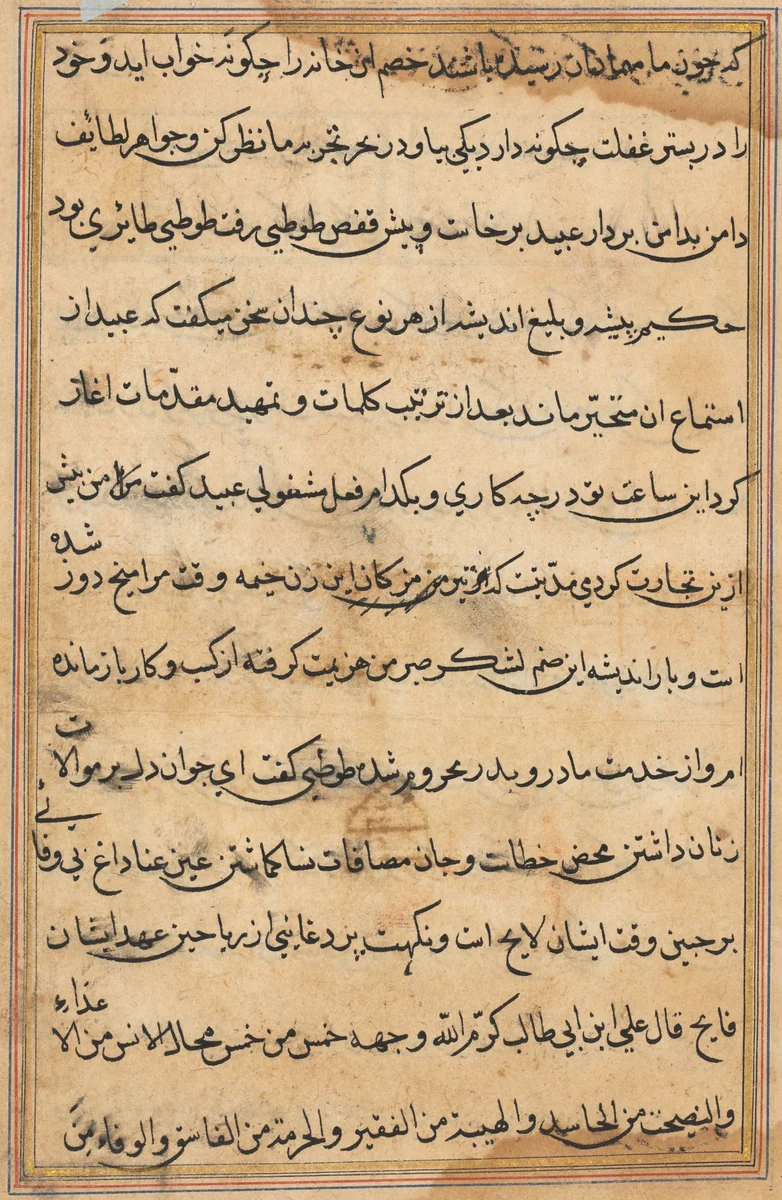 که چون ما مهمانان رسیده باشند خصم این خانه را چکونه خواب اید و خود
را در بستر غفلت چکونه دارد یکی بیا و در بحر تجربه ما نظر کن و جواهر لطائف
دامن بدامن بردار عبید برخاست و پیش قفص طوطیی رفت طوطیی طائری بود
حکیم پیشه و بلیغ اندیشه از هر نوع چندان سخن میکفت که عبید از
استماع ان متحیّر ماند بعد از ترتیب کلمات و تمهید مقدّمات اغاز
کرد این ساعت تو در چه کاری و بکدام فعل مشغولی عبید کفت من پیش
ازین تجارت کردمی مدّتیست که تیر مژکان این زن خیمه وقت مرا میخ دوز شده
است و بار اندیشه این صنم لشکر صبر من هزیمت کرفته از کسب و کار باز مانده
ام و از خدمت مادر و پدر محروم شده طوطی کفت ای جوان دل بر موالات
زنان داشتن محض خطاست و جان مصافات نسا کماشتن عین عنا داغ بی وفائی
بر جبین وقت ایشان لایح است و نکهت بد دغایی از ریاحین عهد ایشان
فایح قال علي ابن ابي طالب کرّم الله وجهه خمس من خمس محال الانس من الاعداء
والنصیحت من الحاسد والهیبة من الفقیر والحرمة من الفاسق والوفاء من